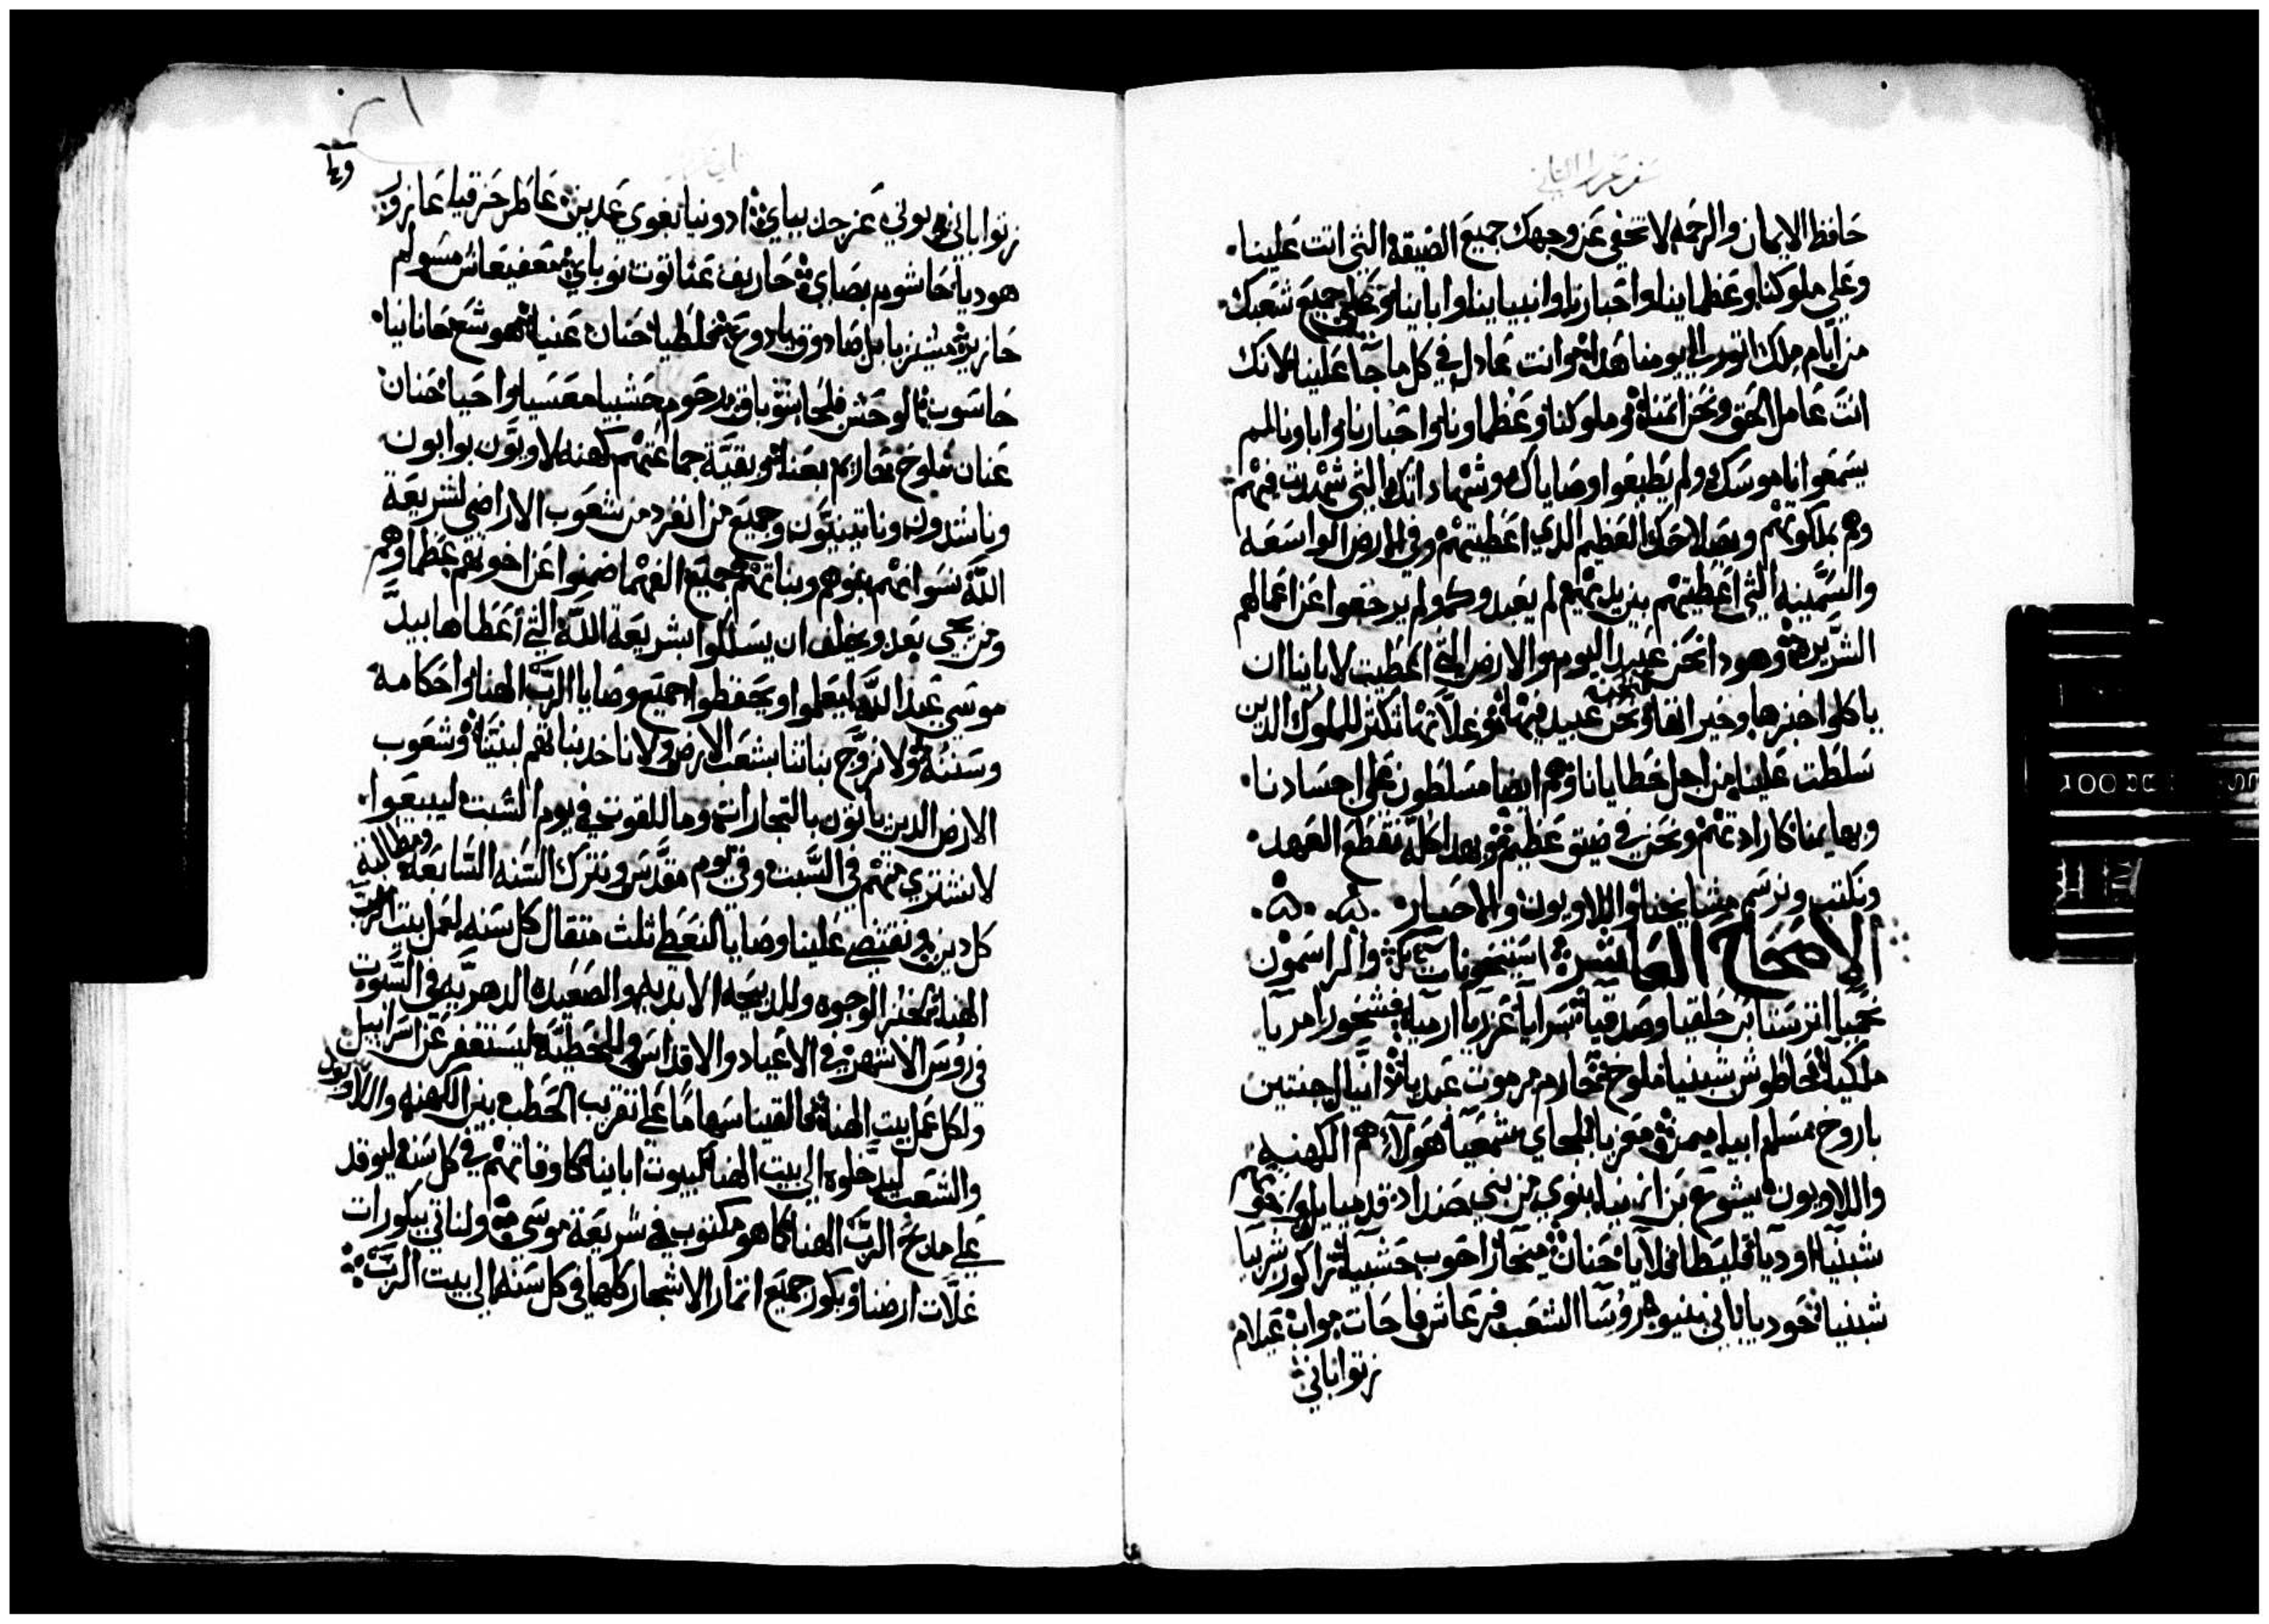 سفر عزرا الثاني
حافظ الايمان والرحمه لا تخفى عن وجهك جميع الضيقه التي اتت علينا
وعلي ملوكنا وعظماينا واحبارنا وانبياينا واباينا وعلي جميع شعبك
من ايام ملك اتور الي يومنا هدا وانت عادل في كل ما جا علينا لانك
انت عامل الحق ونحن اتمنا وملوكنا وعظماونا واحبارنا واباونا لم
يسمعوا ناموسك ولم يطيعوا وصاياك وشهاداتك التي شهدت فيهم
وهم بملكوتهم وبصلاحك العظيم الدي اعطيتهم وفي الارض الواسعه
والسمينه التي اعطيتهم بين يديهم لم يعبدوك ولم يرجعوا عن اعمالهم
الشريره وهودا نحن عبيد اليوم والارض التي اعطيت لاباينا ان
ياكلوا خبزها وخيراتها ونحن عبيد فيها وغلاتها تكثر للملوك الدين
سلطت علينا من اجل خطايانا وهم ايضا مسلطون علي اجسادنا
وبهايمنا كارادتهم ونحن في ضيق عظيم وبهدا كله نقطع العهد
ونكتب ونرسم مشايخنا واللاويون والاحبار
الاصحاح العاشر والراسمون
نحميا ترسنا بن حلقيا وصدقيا سرايا عزريا ارميا فشحور امريا
ملكيا حاطوش شبنيا ملوخ حارم مرموت عبديا دانيال جنتين
باروخ مسلم ابيا ميمن معزيا بلجاي شمعيا هولاء هم الكهنه
واللاويون يشوع بن ازنيا بنوي من بني حنداد قدميايل واخوتهم
شبنيا اوديا قليطا فلايا حنان ميخا راحوب حشبيا زاكور شربيا
شبنيا هوديا باني بنينو روسا الشعب فرعاش فاحات مواب عيلام
زتوا باني
زتوا باني بوني عزجد بيباي ادونيا بغوي عدين عاطر حزقيا عازور
هوديا حاشوم بصاي حاريف عناتوت نوباي مغفيعاش مشولم
حازير مشيزبايل صادوق يادوع فلطيا حنان عنيا هوشع حانانيا
حاسوب الوحش فلحا شوباق رحوم حشبيا معسيا واحيا حنان
عنان ملوخ حاريم بعنا وبقية جماعتهم كهنه لاويون بوابون
وناشدون وناتينيون وجميع من انفرد من شعوب الاراضي لشريعة
الله نسوانهم بنوهم وبناتهم جميع الفهما ضمنوا عن اخوتهم عظماوهم
ومن يجي بعد ويحلف ان يسلكوا بشريعة الله التي اعطاها بيد
موسي عبد الله ليعملوا ويحفظوا جميع وصايا الرب الهنا واحكامه
وسننه ولا نزوج بناتنا بشعب الارض ولا ناخد بناتهم لبنينا وشعوب
الارض الدين ياتون بالتجارات وما للقوت في يوم السبت ليبيعوا
لا نشتري منهم في السبت وفي يوم مقدس ونترك السنه السابعه ومطالبة
كل دين ونقتضي علينا وصايا لنعطي ثلث مثقال كل سنه لعمل بيت الرب
الهنا لخبز الوجوه وللدبيحه الابديه والصعيده الدهريه في السبوت
في روس الاشهر في الاعياد والاقداس وللخطيه ليستغفر عن اسراييل
ولكل عمل بيت الهنا والقينا سهاما علي تقريب الحطب بين الكهنه واللاويون
والشعب ليدخلوه الي بيت الهنا لبيوت اباينا كاوقاتهم في كل سنه ليوقد
علي مدبح الرب الهنا كما هو مكتوب في شريعة موسي ولناتي ببكورات
غلات ارضنا وبكور جميع اثمار الاشجار كلها في كل سنه الي بيت الرب